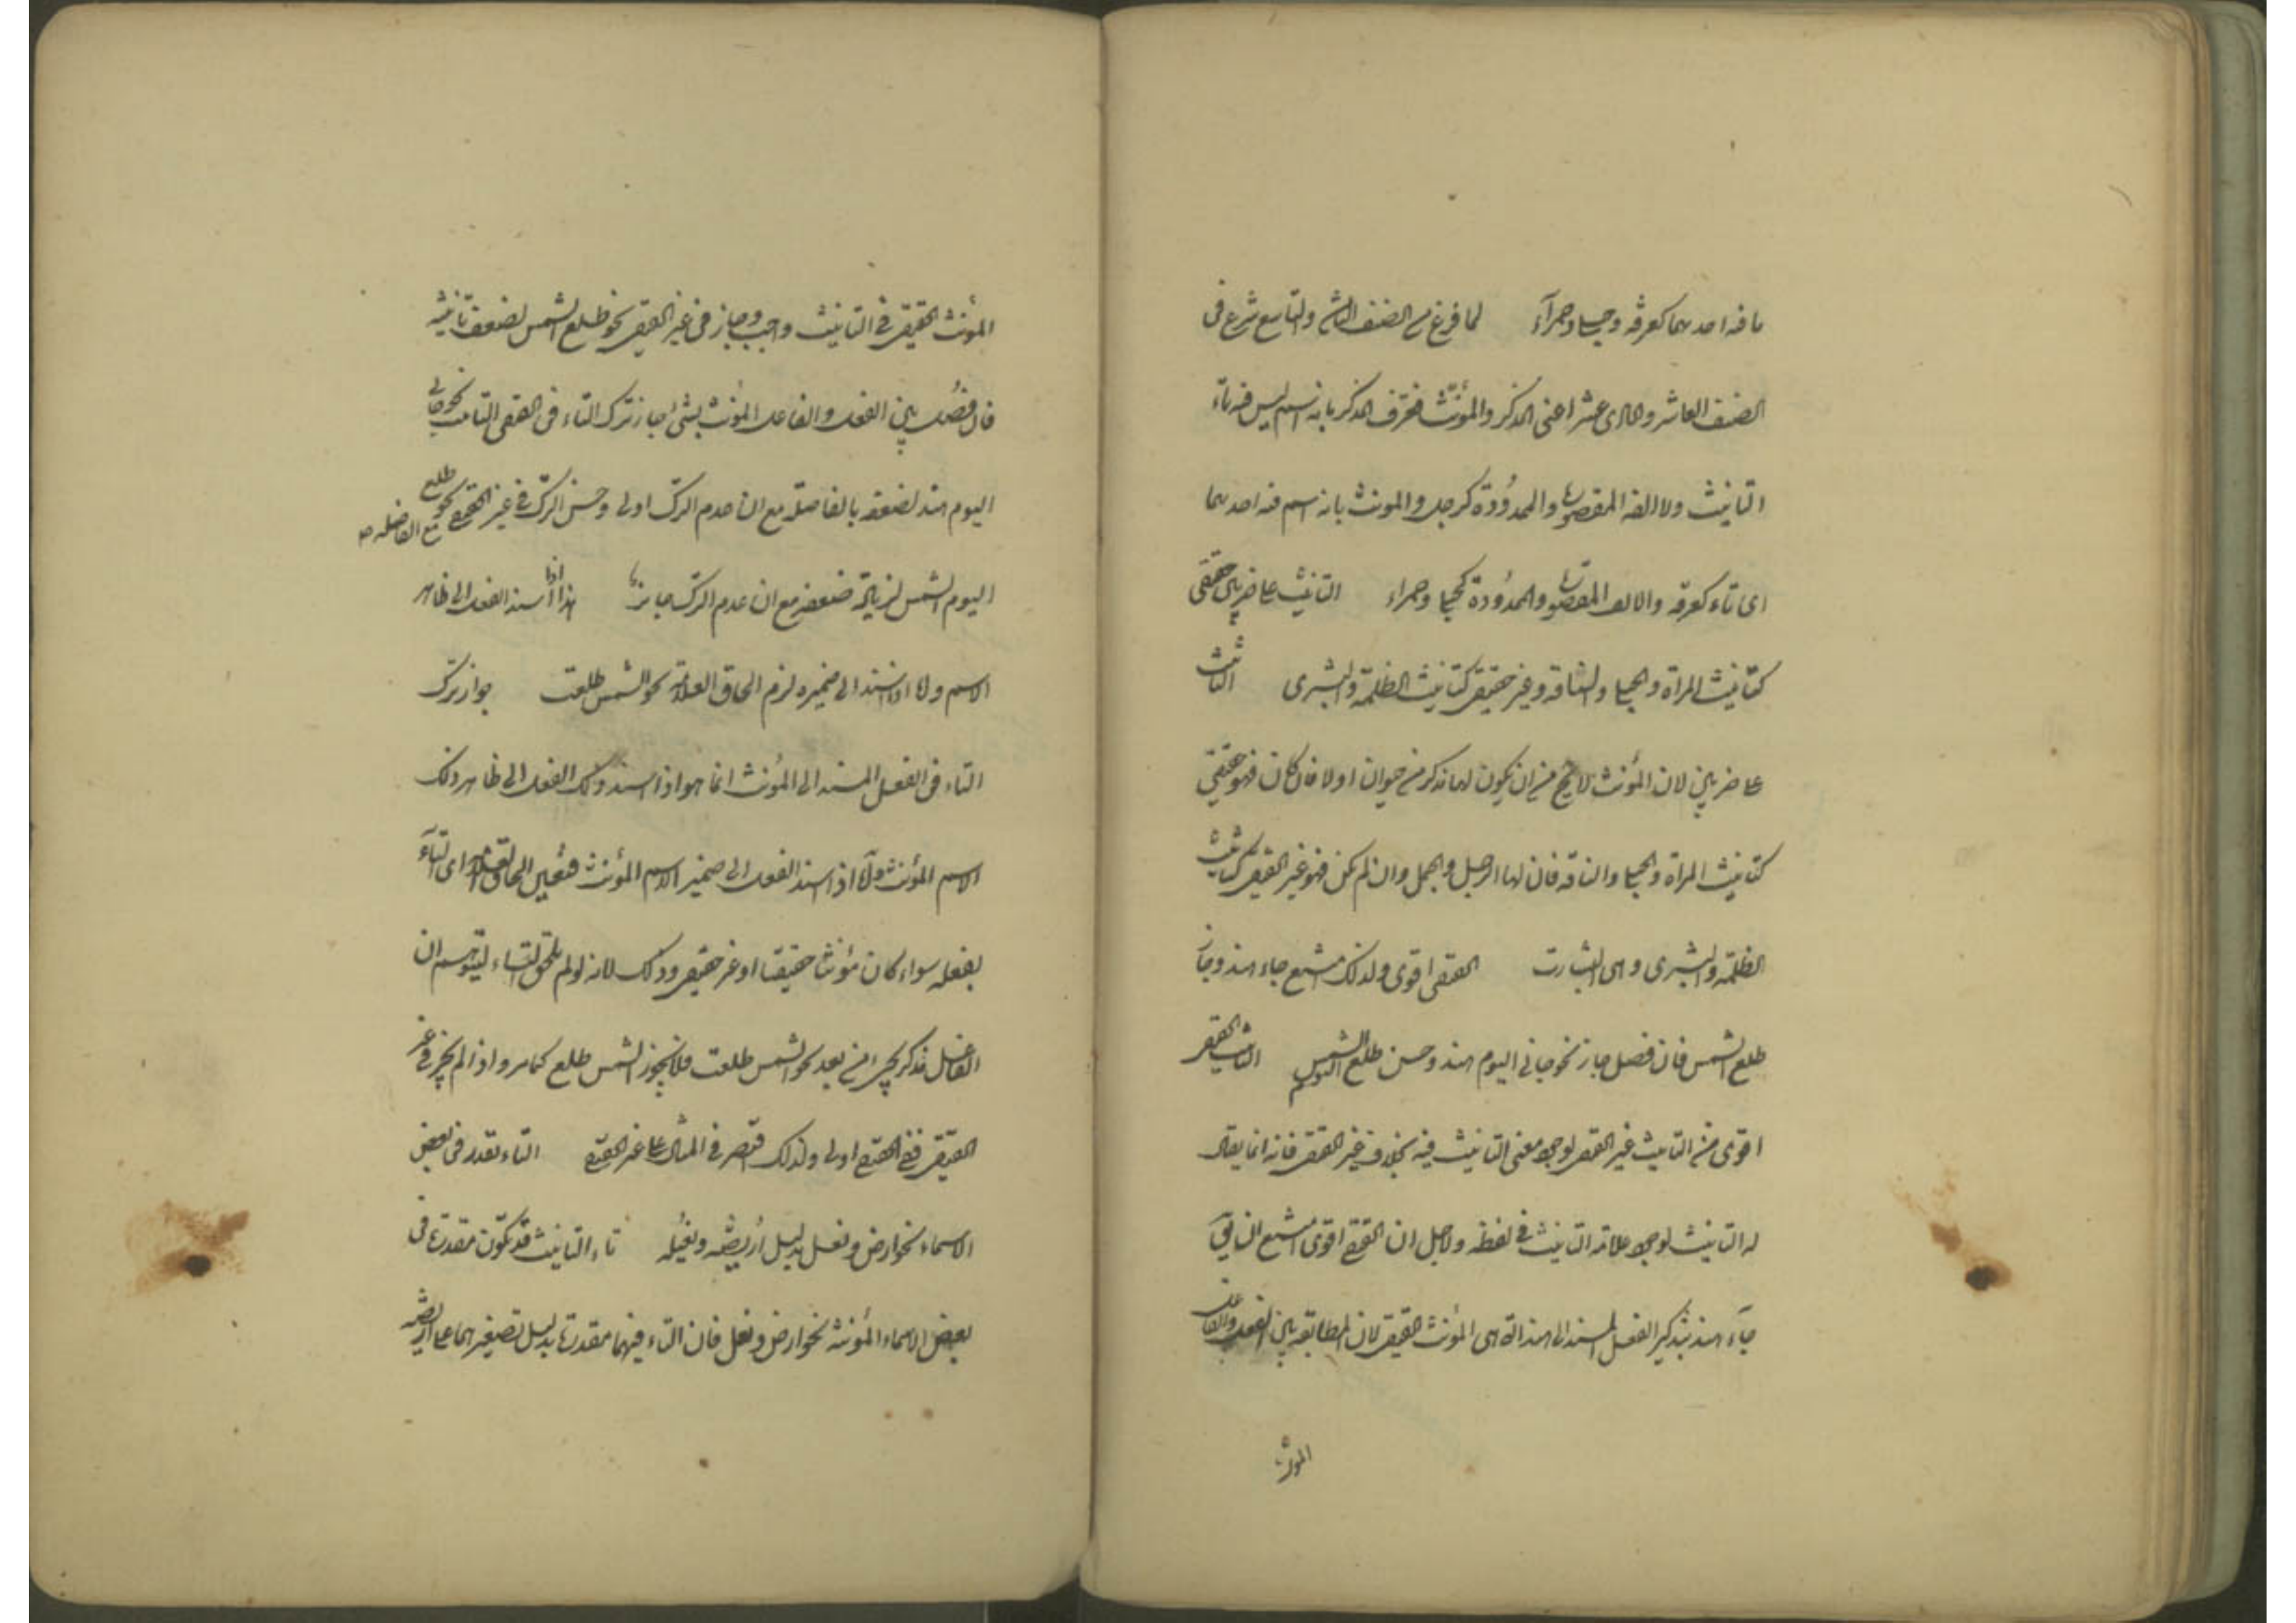 ما فيه احدهما كغرفة وحبلى وحمرآء لما فرغ من الصنف الثامن والتاسع شرع فى
الصنف العاشر والحادى عشر اعنى المذكر والمؤنث فعرف المذكر بانه اسم ليس فيه تاء
التانيث ولا الفه المقصورة والممدودة كرجل والمونث بانه اسم فيه احدهما
اى تاء كغرفة والالف المقصورة والممدودة كحبلى وحمراء التانيث على ضربين حقيقى
كتانيث المراة والحبلى والناقة وغير حقيقى كتانيث الظلمة والبشرى التانيث
على ضربين لان المؤنث لا يخ من ان يكون لها مذكر من حيوان اولا فان كان فهو حقيقى
كتانيث المراة والحبلى والناقة فان لها الرجل والجمل وان لم يكن فهو غير الحقيقى كتانيث
الظلمة والبشرى وهى البشارت الحقيقى اقوى ولذلك امتنع جاء هند وجاز
طلع الشمس فان فصل جاز نحو جانى اليوم هند وحسن طلع اليوم الشمس التانيث الحقيقى
اقوى من التانيث غير الحقيقى لوجود معنى التانيث فيه بخلاف غير الحقيقى فانه انما يقال
له التانيث لوجود علامة التانيث فى لفظه ولاجل ان الحقيقى اقوى امتنع ان يقال
جآء هند بتذكير الفعل المسند الى هند التى هى المؤنث الحقيقى لان المطابقة بين الفعل والفاعل
المونث
المؤنث الحقيقى فى التانيث واجب وجاز فى غير الحقيقى نحو طلع الشمس لضعف تانيثه
فان فصل بين الفعل والفاعل المؤنث بشئ جاز ترك التاء فى الحقيقى التانيث نحو جانى
اليوم هند لضعفه بالفاصلة مع ان عدم الترك اولى وحسن الترك فى غير الحقيقى نحو طلع
مع الفاصلة
اليوم الشمس لزيادة ضعفه مع ان عدم الترك جايز هذا اذا اسند الفعل الى ظاهر
الاسم ولا اذا اسند الى ضميره لزم الحاق العلامة نحو الشمس طلعت جواز ترك
التاء فى الفعل المسند الى المؤنث انما هو اذا اسند ذلك الفعل الى ظاهر ذلك
الاسم المؤنث والّا اذا اسند الفعل الى ضمير الاسم المؤنث فتعين الحاق العلامة اى التآء
بفعله سواء كان مؤنثا حقيقيا او غير حقيقى وذلك لانه لو لم يلحق التاء ليتوهم ان
الفاعل مذكر يجئ من بعد نحو الشمس طلعت فلا يجوز الشمس طلع كما مر واذا لم يجز فى غير
الحقيقى ففى الحقيقى اولى ولذلك اقتصر فى المثال على غير الحقيقى التاء تقدر فى بعض
الاسماء نحو ارض ونعل بدليل اريضة ونعيلة تاء التانيث قد تكون مقدرة فى
بعض الاسماء المؤنثة نحو ارض ونعل فان التاء فيهما مقدرة بدليل تصغيرهما على اريضة